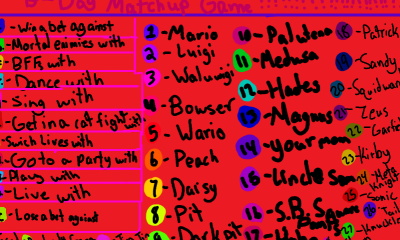 Day Matchup Game
- Win a bet against
- Mortal enemies with
- BFF with
- Dance with
- Sing with
- Get in a cat fight with
- Swich Lives with
- Go to a party with
- Play with
- Live with
- Lose a bet against
1 - Mario
2 - Luigi
3 - Waluigi
4 - Bowser
5 - Wario
6 - Peach
7 - Daisy
8 - Pit
9 - Dark pit
10 - Palutena
11 - Medusa
12 - Hades
13 - Magnus
14 - your mom
16 - Uncle Sam
16 - S.B.
17 -
18 - Patrick
19 - Sandy
20 - Squidward
21 - Zeus
22 - Garfi
23 - Kirby
24 - Meta Knight
25 - Sonic
26 - Tail
27 - Knuckle